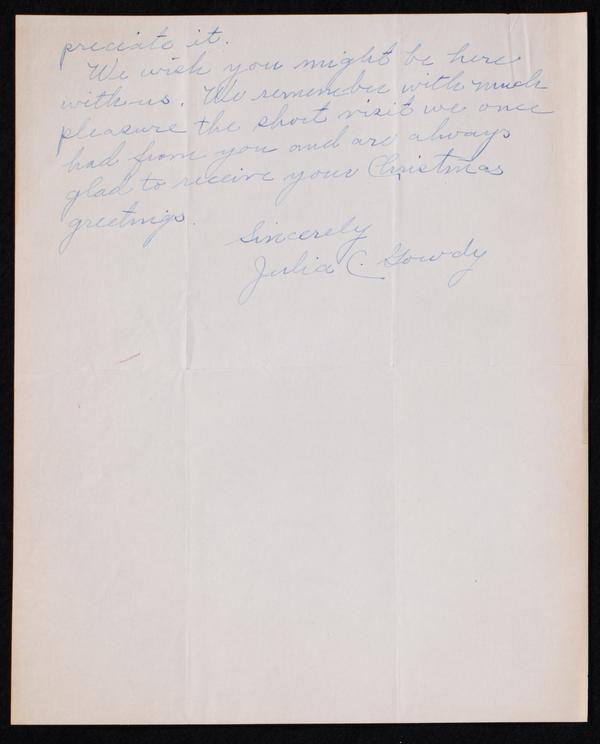 preciate it.
We wish you might be here
with us. We remember with much
pleasure the short visit we once
had from you and are always
glad to receive your Christmas
greetings.
Sincerely
Julia C. Gowdy